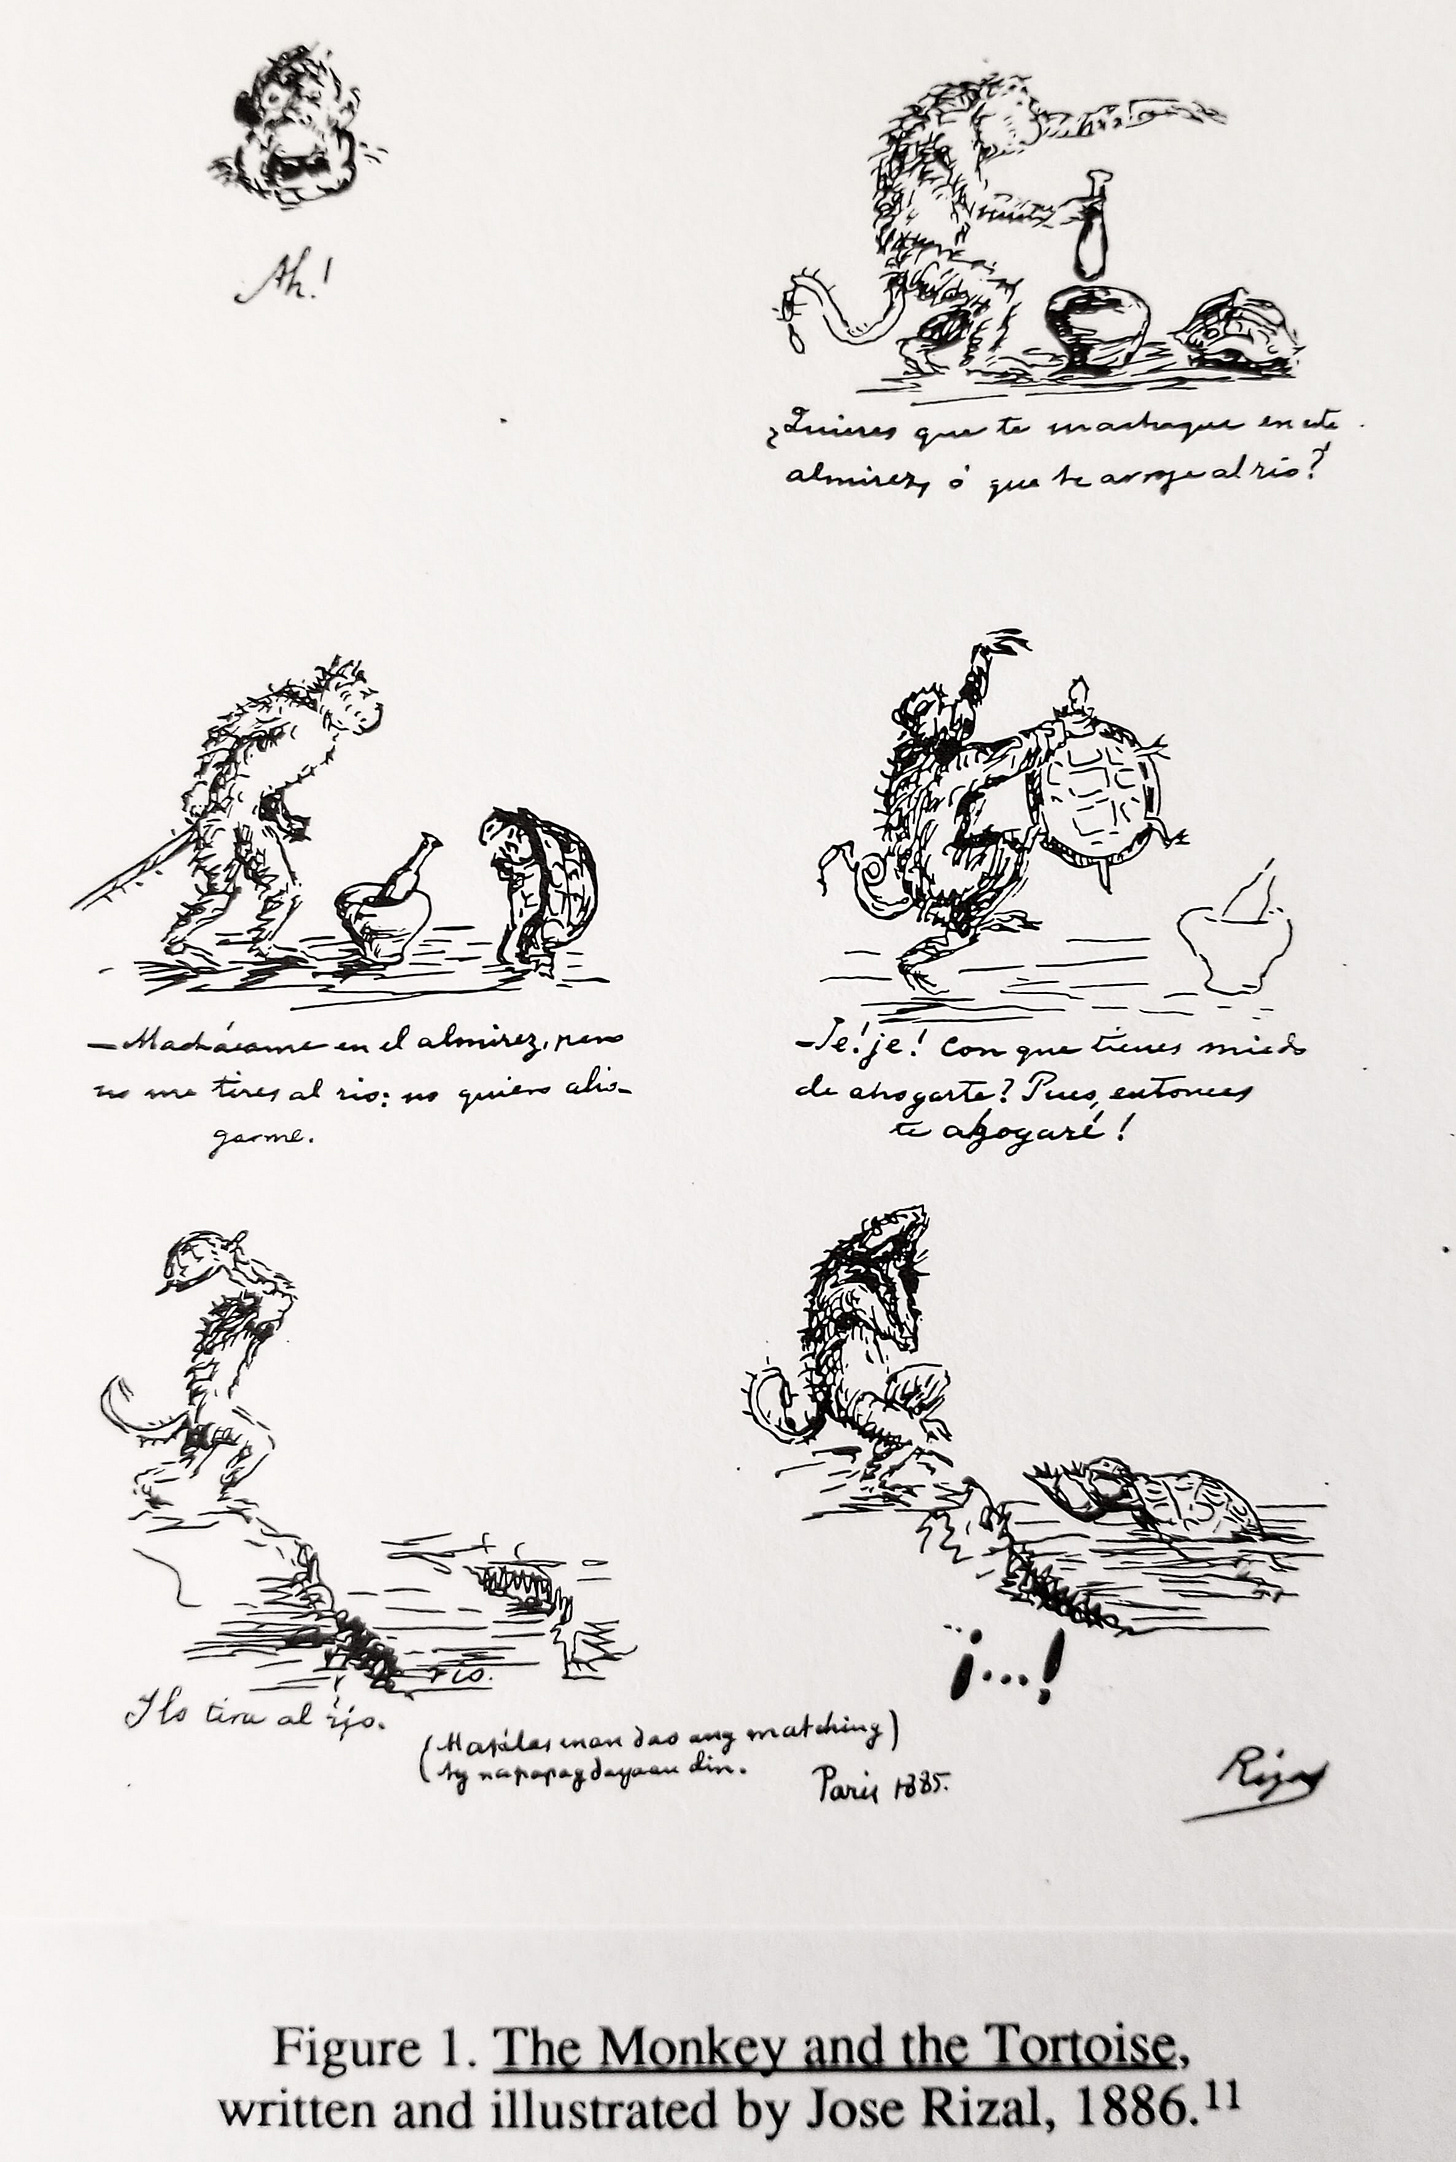 Ah!
¿Quieres que te machaque en este
almirez, ó que te arroje al rio?
—Machácame en el almirez, pero
no me tires al rio: no quiero aho-
garme.
-Je! je! Con que tienes miedo
de ahogarte? Pues, entonces
te ahogaré!
rio.
Y lo tira al rio.
¡...!
(Matálas man dao ang matching)
(Ay napapagdayaan din.
Paris 1885.
Rizal
Figure 1. The Monkey and the Tortoise,
written and illustrated by Jose Rizal, 1886.11